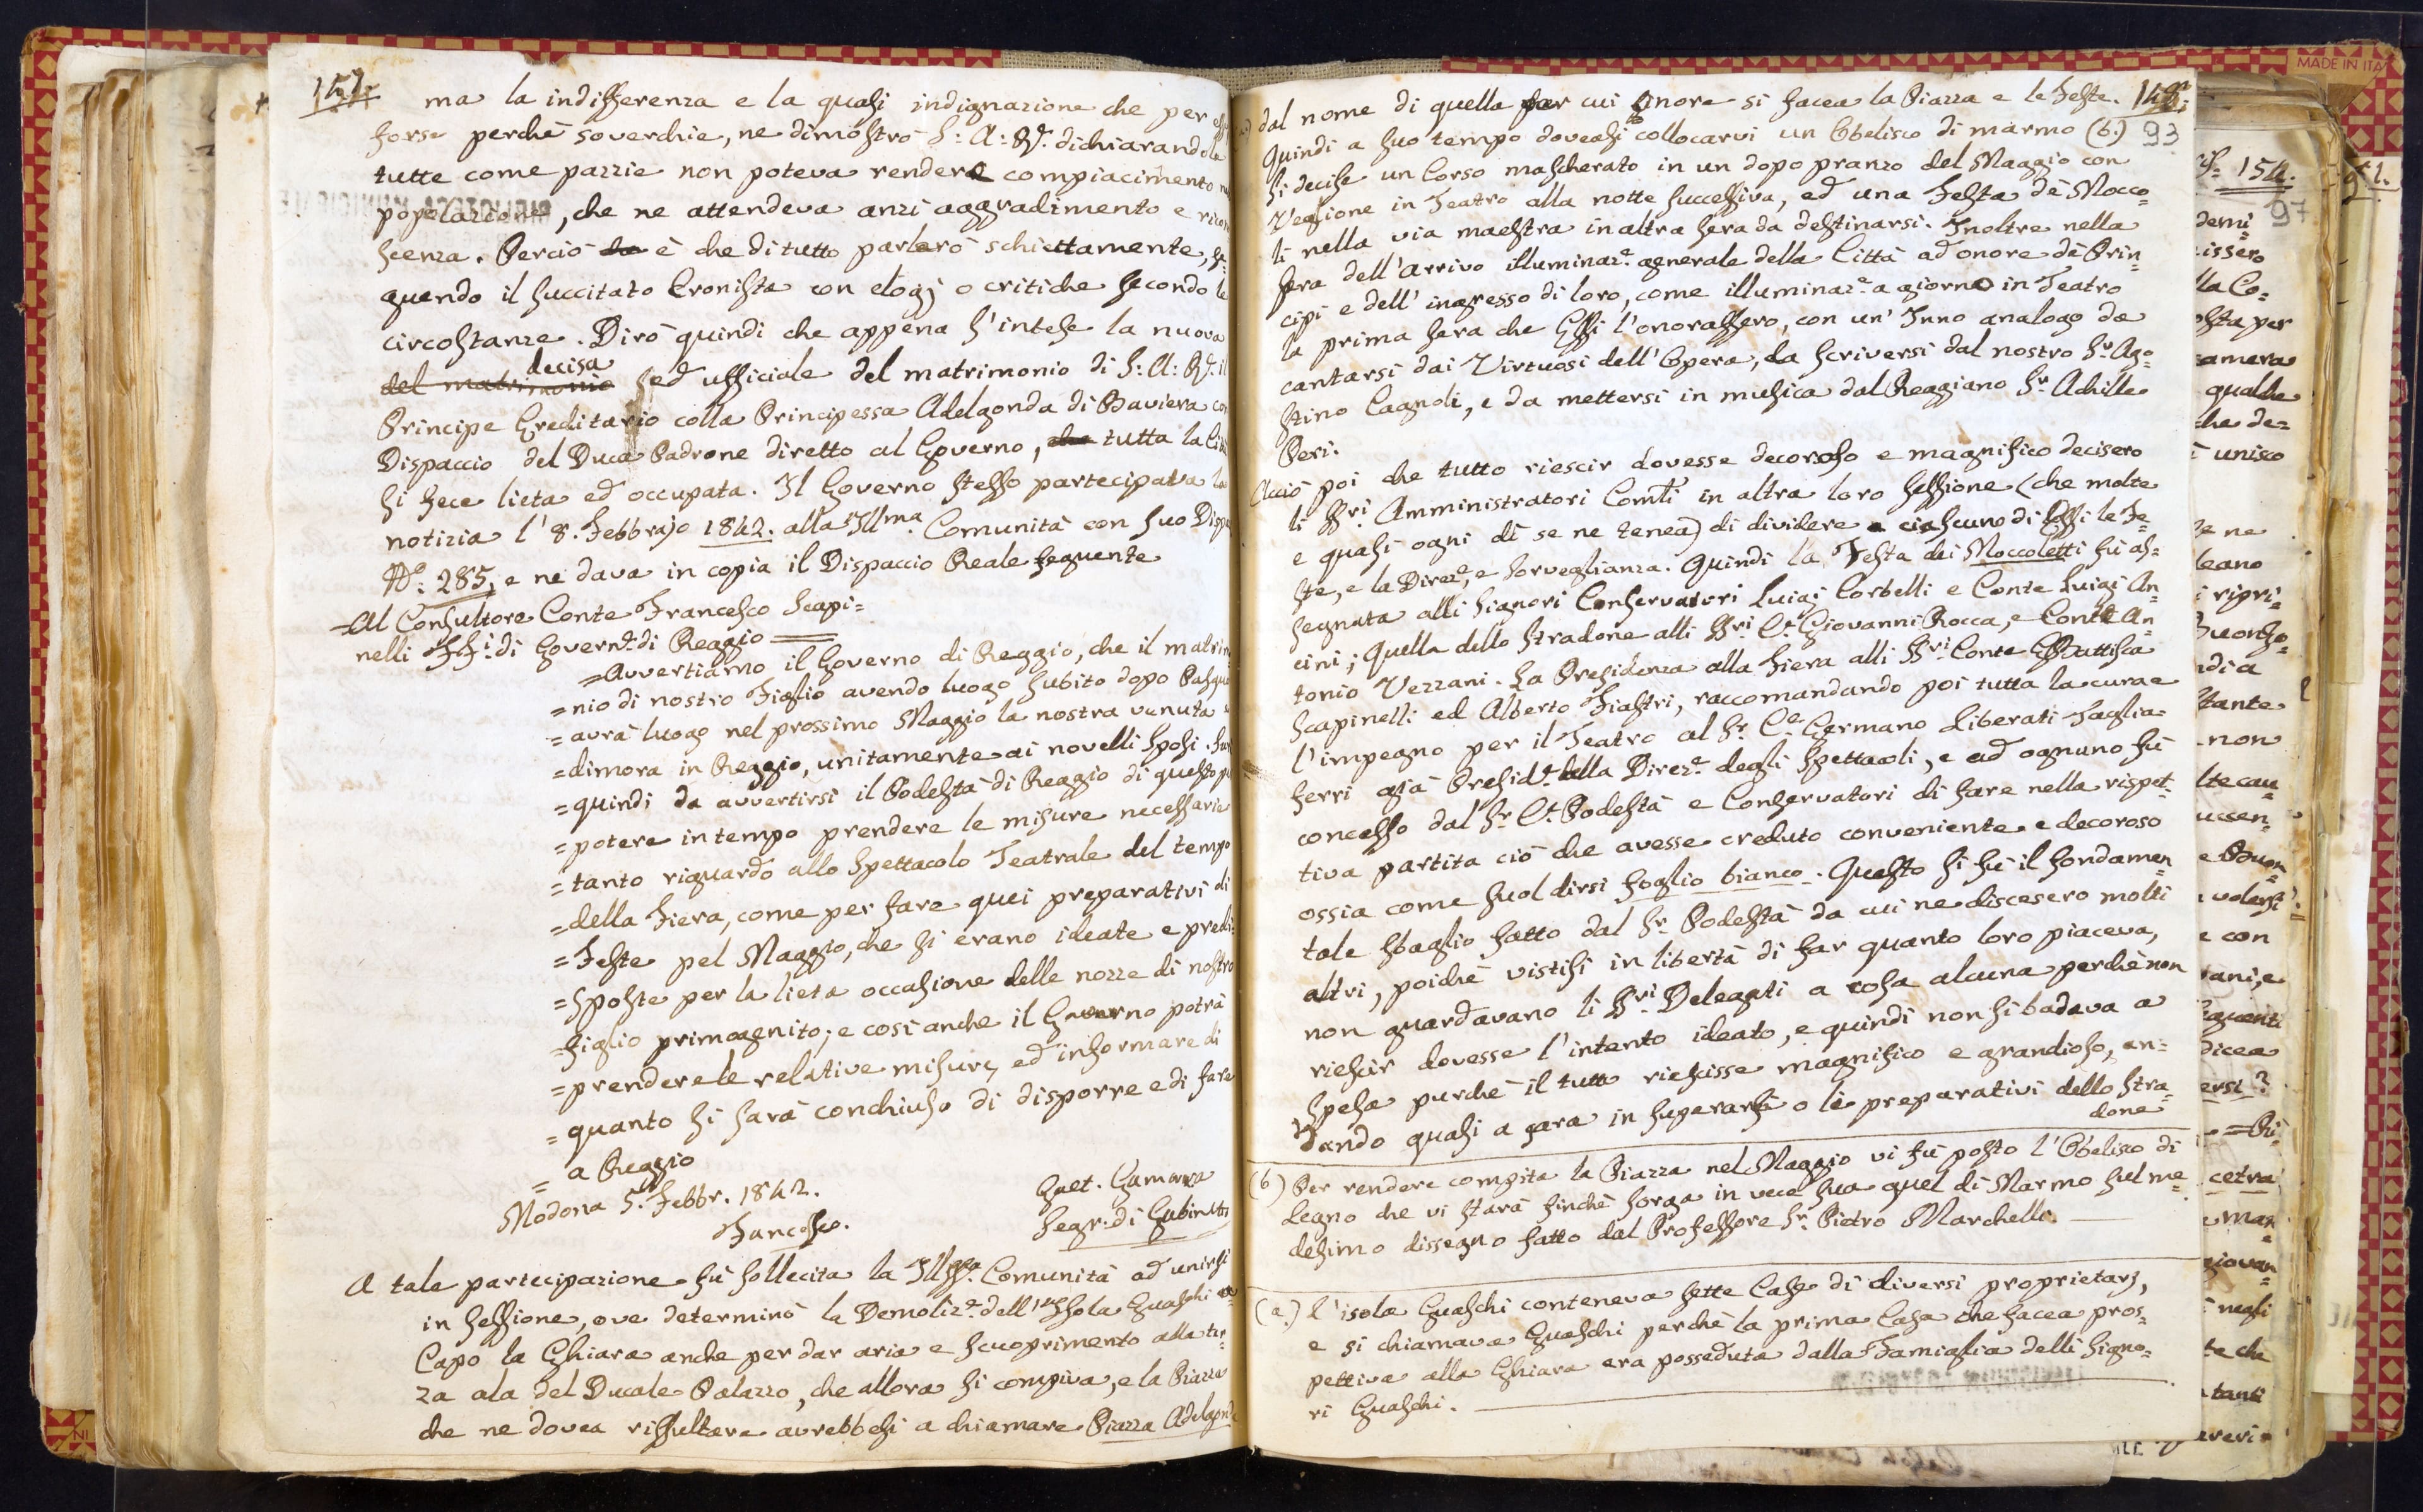 ma la indifferenza e la quasi indignazione che per
forse perchè soverchie, ne dimostrò S: A: R. dichiarandole
tutte come pazzie non poteva rendere compiacimento
popolazione, che ne attendeva anzi aggradimento e
scenza. Perciò è che di tutto parlerò schiettamente, se=
guendo il succitato Cronista con elogj o critiche secondo le
circostanze. Dirò quindi che appena s'intese la nuova
decisa
del matrimonio ed ufficiale del matrimonio di S: A: R. il
Principe Ereditario colla Principessa Adelgonda di Baviera con
Dispaccio del Duca Padrone diretto al Governo, che tutta la Città
si fece lieta ed occupata. Il Governo stesso partecipava la
notizia l'8. Febbrajo 1842. alla Illma Comunità con suo
N°: 285, e ne dava in copia il Dispaccio Reale seguente
=Al Consultore Conte Francesco Scapi=
nelli FFi. di Governe. di Reggio =
=Avvertiamo il Governo di Reggio, che il matrimo
=nio di nostro Figlio avendo luogo subito dopo Pasqua
=avrà luogo nel prossimo Maggio la nostra venuta
=dimora in Reggio, unitamente ai novelli Sposi.
=quindi da avvertirsi il Podestà di Reggio di questo
=potere in tempo prendere le misure necessarie
=tanto riguardo allo Spettacolo Teatrale del tempo
=della Fiera, come per fare quei preparativi di
=Feste pel Maggio, che si erano ideate e predi=
=sposte per la lieta occasione delle nozze di nostro
=figlio primogenito; e così anche il Governo potrà
=prendere le relative misure, ed informare di
=quanto si sarà conchiuso di disporre e di fare
= a Reggio
Modona 5. Febbr. 1842.
Francesco.
Gaet. Gamorra
Segr: di Gabinetto
A tale partecipazione fù sollecita la Comunità ad unirsi
in sessione, ove determinò la Demolize. dell'Isola Guaschi
Capo la Ghiara anche per dar aria e scuoprimento alla ter=
za ala del Ducale Palazzo, che allora si compiva, e la Piazza
che ne dovea risultare avrebbesi a chiamare Piazza Adelgonda
93
dal nome di quella per cui onore si facea la Piazza e le Feste.
Quindi a suo tempo doveasi collocarvi un Obelisco di marmo (b.)
Si decise un Corso mascherato in un dopo pranzo del Maggio con
Veglione in Teatro alla notte successiva, ed una Festa dè Mocco=
li nella via maestra in altra sera da destinarsi. Inoltre nella
sera dell'arrivo illuminaze. generale della Città ad onore dè Prin=
cipi e dell'ingresso di loro, come illuminaze. a giorno in Teatro
la prima sera che Essi l'onorassero, con un' Inno analogo da
cantarsi dai Virtuosi dell'Opera, da scriversi dal nostro Sr. Ago=
stino Cagnoli, e da mettersi in musica dal Reggiano Sr. Achille
Peri.
Acciò poi che tutto riescir dovesse decoroso e magnifico decisero
li SSri. Amministratori Comli in altra loro sessione (che molte
e quasi ogni dì se ne tenea) di dividere a ciascuno di Essi le Fe=
ste, e la Direze, e sorveglianza. Quindi la Festa dei Moccoletti fù as=
segnata alli Signori Conservatori Luigi Corbelli e Conte Luigi An=
cini; Quella dello Stradone alli SSri. Ce. Giovanni Rocca, e Conte An=
tonio Vezzani. La Presidenza alla Fiera alli SSri. Conte GBattista
Scapinelli ed Alberto Fiastri, raccomandando poi tutta la cura e
l'impegno per il Teatro al Sr. Ce. Germano Liberati Taglia=
ferri già Preside. della Direze. degli Spettacoli, e ad ognuno fù
concesso dal Sr. Ce. Podestà e Conservatori di fare nella rispet=
tiva partita ciò che avesse creduto conveniente e decoroso
ossia come suol dirsi foglio bianco. Questo si fù il fondamen=
tale sbaglio fatto dal Sr. Podestà da cui ne discesero molti
altri, poichè vistisi in libertà di far quanto loro piaceva,
non guardavano li SSri. Delegati a cosa alcuna perchè non
riescir dovesse l'intento ideato, e quindi non si badava a
spesa purchè il tutto riescisse magnifico e grandioso, an=
dando quasi a gara in superarsi o li preparativi dello Stra=
done
(b) Per rendere compita la Piazza nel Maggio vi fù posto l'Obelisco di
Legno che vi starà finchè sorga in vece sua quel di Marmo sul me=
desimo dissegno fatto dal Professore Sr. Pietro Marchelli.
(a.) l'isola Guaschi conteneva sette Case di diversi proprietarj,
e si chiamava Guaschi perchè la prima Casa che facea pros=
pettiva alla Ghiara era posseduta dalla Famiglia delli Signo=
ri Guaschi.
154.
97
MADE IN ITA